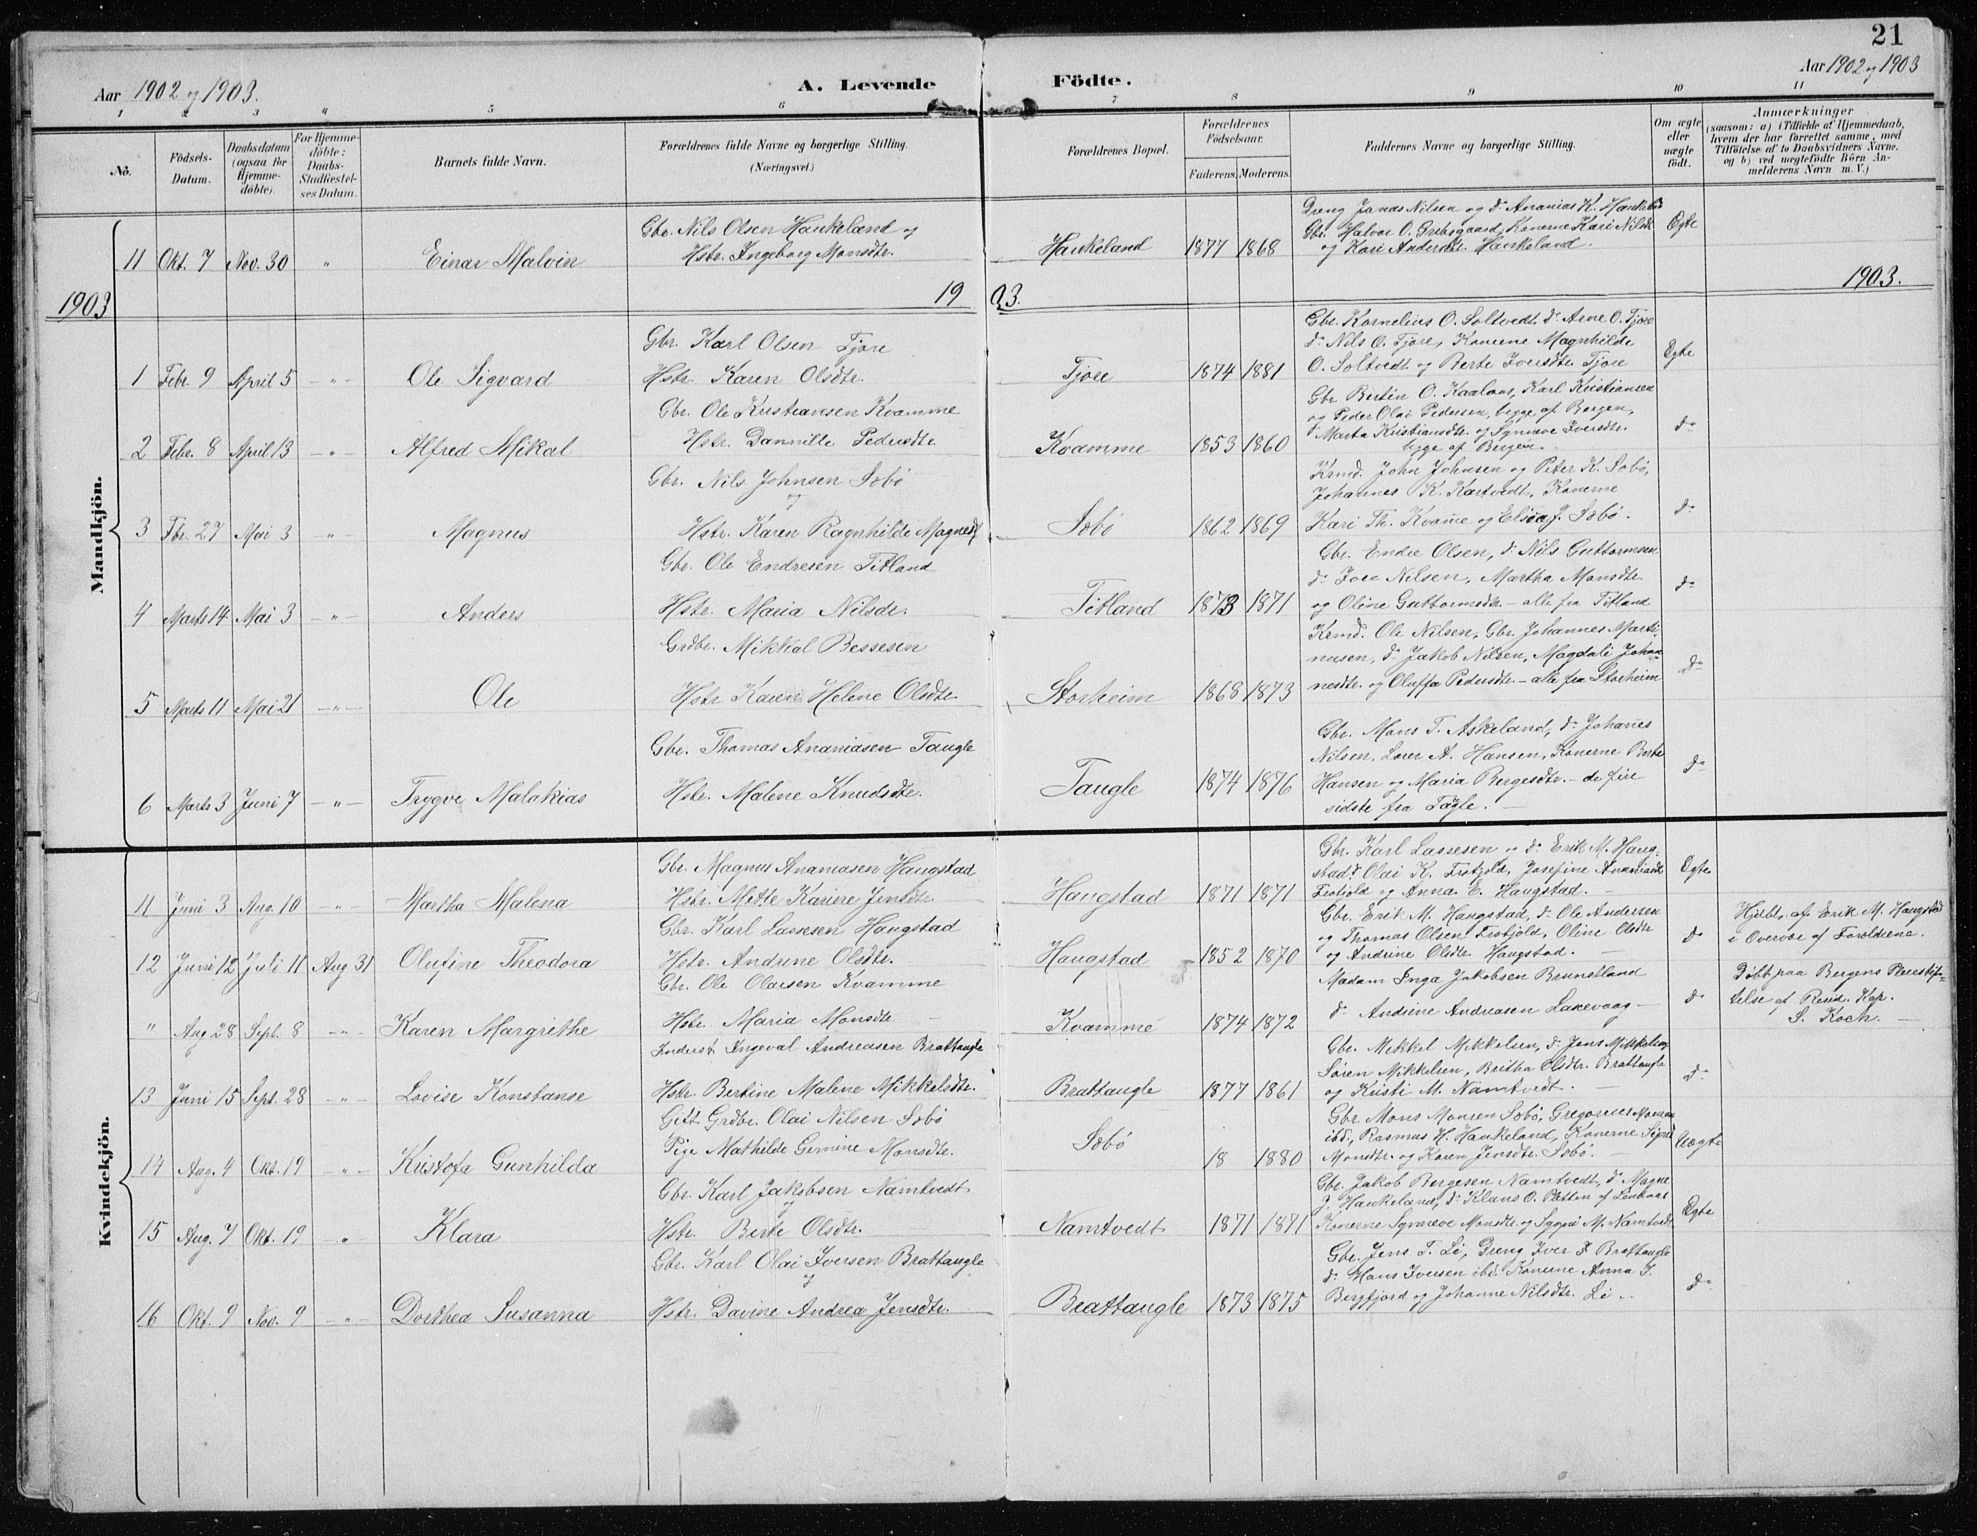 21
Aar 1902 og 1903.
A. Levende
Födte.
Aar 1902 og 1903
1 2 3 4 5 6 7 8 9 10 11
No.
Födsels-Datum.
Daabsdatum (ogsaa för Hjemme-döbte).
For Hjemme-döbte: Daabs-Stadfæstel-ses Datum.
Barnets fulde Navn.
Forældrenes fulde Navne og borgerlige Stilling. (Næringsvei.)
Forældrenes Bopæl.
Forældrenes Födselsaar.
Faderens. Moderens.
Faddernes Navne og borgerlige Stilling.
Om ægte eller uægte födt.
Anmærkninger
(saasom: a) i Tilfælde af Hjemmedaab, hvem der har forrettet samme, med Tilföielse af to Daabsvidners Navne, og b) ved uægtefödte Börn Anmelderens Navn m. V.)
Mandkjön.
Gbr. Nils Olsen Haukeland og
11 Okt. 7 Nov. 30 " Einar Malvin Hstr. Ingeborg Monsdtr. Haukeland 1877 1868
Dreng Jonas Nilsen og do Ananias K. Haukeland
Gbr. Halvor O. Konerne Kari Nilsdtr
og Kari Andersdtr. Haukeland.
Egte
1903 1903. 1903.
Gbr. Karl Olsen Tjore
1 Febr. 9 April 5 " Ole Sigvard Hstr. Karen Olsdtr. Tjore 1874 1881
Gbr. Kornelius O. Soltvedt, do Arne O. Tjore
do Nils O. Tjore, Konerne Magnhilde
O. Soltvedt og Berte Iversdtr. Tjore
Egte
Gbr. Ole Kristiansen Kvamme
2 Febr. 8 April 13 " Alfred Mikal Hstr. Dannille Pedersdtr Kvamme 1853 1860
Gbr. Bertin O. Kaalaas, Karl Kristiansen
og Peder Olai Pedersen, begge af Bergen,
do Marta Kristiansdtr. og Synneve Iversdtr.
begge af Bergen.
do
Gbr. Nils Johnsen Sobö
og
3 Fbr. 27 Mai 3 " Magnus Hstr. Karen Ragnhilde Magnesdtr Sobö 1862 1869
Kemd. John Johnsen og Peter K. Sobö,
Johannes K. Kartvedt, Konerne
Kari Th. Kvame og Elsea J. Sobö.
do
Gbr. Ole Endresen Titland
4 Marts 14 Mai 3 " Anders Hstr. Maria Nilsdr. Titland 1873 1871
Gbr. Endre Olsen, do Nils Guttormsen
do Iver Nilsen, Martha Monsdtr
og Oline Guttormsdtr. – alle fra Titland
do
Grdbr. Mikkal Bessesen
5 Marts 11 Mai 21 " Ole Hstr Karen Helene Olsdtr. Storheim 1868 1873
Kemd. Ole Nilsen, Gbr. Johannes Marti-
nusen, do Jakob Nilsen, Magdali Johan-
nesdtr. og Oluffa Pedersdtr. – alle fra Storheim
do
Gbr. Thomas Ananiasen Taugle
6 Marts 3 Juni 7 " Trygve Malakias Hstr. Malene Knudsdtr. Taugle 1874 1876
Gbr. Mons T. Askeland, do Johanes
Nilsen, Lærer A. Hansen, Konerne Berte
Hansen og Maria Bergesdtr. – de fire
sidste fra Tagle.
do
Kvindekjön.
Gbr. Magnus Ananiasen Haugstad
11 Juni 3 Aug. 10 " Martha Malena Hstr. Mette Karine Jensdtr. Haugstad 1871 1871
Gbr. Karl Lassesen og do Erik M. Haug-
stad, do Olai K. Frotjold, Josefine Ananiasdtr
Frotjold og Anna E. Haugstad.
Egte
Gbr. Karl Lassesen Haugstad
12 Juni 12 Juli 11 Aug 31 Olufine Theodora Hstr. Andrine Olsdtr. Haugstad 1852 1870
Gbr. Erik M. Haugstad, do Ole Andersen
og Thomas Olsen Frotjold, Oline Olsdtr
og Andrine Olsdtr. Haugstad.
do
Hjdbt. af Erik M. Haugstad
i Overvær af Forældrene.
Gbr. Ole Olaisen Kvamme
" Aug 28 Sept. 8 " Karen Margrethe Hstr. Maria Monsdtr. Kvamme 1874 1872
Madam Inga Jakobsen Brunstland
do Andrine Andreasen Laxevaag
do
Döbt paa Bergens Pleiestif-
telse af Resid. Kap.
S. Koch.
Inderst. Ingeval Andreasen Brattaugle
13 Juni 15 Sept. 28 " Lovise Konstanse Hstr. Bertine Malene Mikkelsdtr. Brattaugle 1877 1861
Gbr. Mikkel Mikkelsen, do Jens Mikkelsen
Sören Mikkelsen, Britha Olsdtr. Brattaugle
og Kristi M. Namtvedt.
do
Gift Grdbr. Olai Nilsen Sobö
14 Aug. 4 Okt. 19 " Kristofa Gunhilda Pige Mathilde Gemine Monsdtr. Sobö 18 1880
Gbr. Mons Monsen Sobö, Gregorius Monsen
ibd., Rasmus H. Haukeland, Konerne Sigrid
Monsdtr. og Karen Jensdtr. Sobö.
Uægte
Gbr. Karl Jakobsen Namtvedt
og
15 Aug. 7 Okt. 19 " Klara Hstr. Berte Olsdtr. Namtvedt 1871 1871
Gbr. Jakob Bergesen Namtvedt, do Magne
J. Haukeland, do Klaus O.
Konerne Synneve Monsdtr. og M. Namtvedt.
Egte
Gbr. Karl Olai Iversen Brattaugle
og
16 Okt. 9 Nov. 9 " Dorthea Susanna Hstr. Davine Andrea Jensdtr. Brattaugle 1873 1875
Gbr. Jens T. Li, Dreng Iver J Brattaugle
do Hans Iversen ibd. Konerne Anna J.
Bergfjord og Johanne Nilsdtr. Li
do